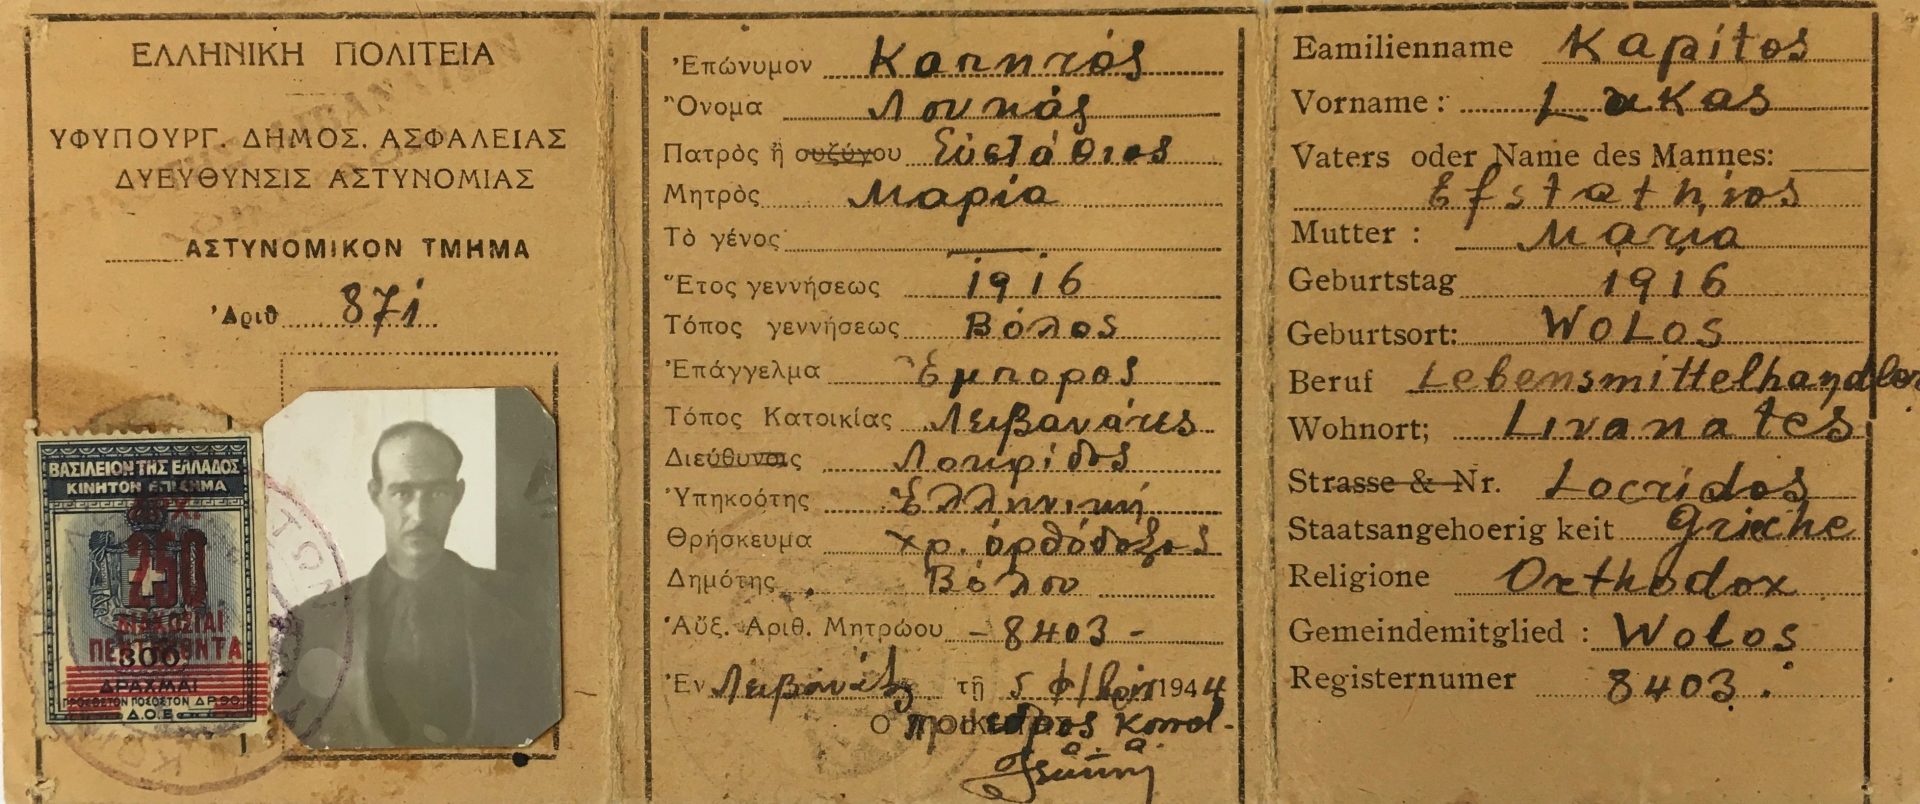 ΕΛΛΗΝΙΚΗ ΠΟΛΙΤΕΙΑ
ΥΦΥΠΟΥΡΓ. ΔΗΜΟΣ. ΑΣΦΑΛΕΙΑΣ
ΔΥΕΥΘΥΝΣΙΣ ΑΣΤΥΝΟΜΙΑΣ
ΑΣΤΥΝΟΜΙΚΟΝ ΤΜΗΜΑ
Ἀριθ 871
ΒΑΣΙΛΕΙΟΝ ΤΗΣ ΕΛΛΑΔΟΣ
ΚΙΝΗΤΟΝ ΕΠΙΣΗΜΑ
ΔΡΧ.
250
ΔΙΑΚΟΣΙΑΙ
ΠΕΝΤΗΚΟΝΤΑ
300
ΔΡΑΧΜΑΙ
Δ.Ο.Ε.
Ἐπώνυμον Καπητός
Ὄνομα Λουκάς
Πατρὸς ἢ συζύγου Εὐστάθιος
Μητρὸς Μαρία
Τὸ γένος
Ἔτος γεννήσεως 1916
Τόπος γεννήσεως Βόλος
Ἐπάγγελμα Ἔμπορος
Τόπος Κατοικίας Λειβανάτες
Διεύθυνσις Λοκρίδος
Ὑπηκοότης Ἑλληνική
Θρήσκευμα χρ. ὀρθόδοξος
Δημότης Βόλου
Αὔξ. Ἀριθ. Μητρώου - 8403 -
Ἐν τῇ 5 1944
Ο πρόεδρος
Eamilienname Kapitos
Vorname : Lukas
Vaters oder Name des Mannes:
Efstathios
Mutter : Maria
Geburtstag 1916
Geburtsort: Wolos
Beruf Lebensmittelhandler
Wohnort; Livanates
Strasse & Nr. Locridos
Staatsangehoerig keit Grieche
Religione Orthodox
Gemeindemitglied : Wolos
Registernumer 8403.